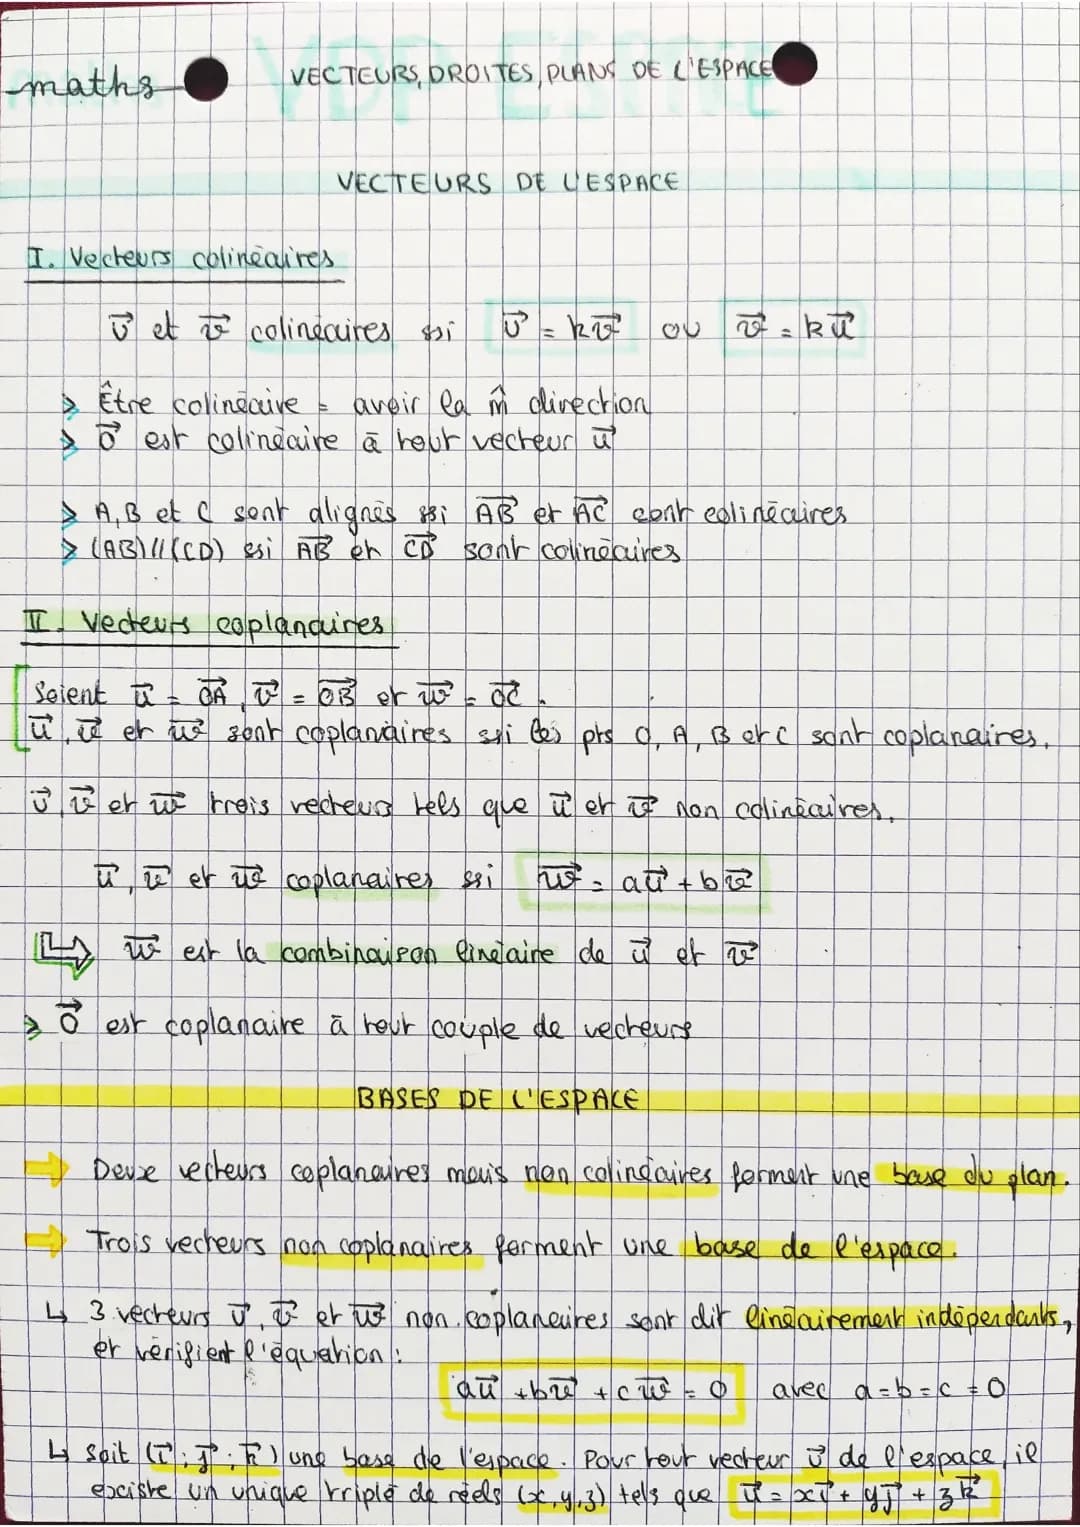 maths
VDP ESPACE
VECTEURS, DROITES, PLANS DE L'ESPACE
VECTEURS DE L'ESPACE
I. Vecteurs colinéaires
u⃗ et v⃗ colinéaires ssi u⃗ = kv⃗ ou v⃗ = ku⃗
> Être colinéaire = avoir la m̂ direction
> 0⃗ est colinéaire à tout vecteur u⃗
> A, B et C sont alignés ssi AB⃗ et AC⃗ sont colinéaires
> (AB)//(CD) ssi AB⃗ et CD⃗ sont colinéaires
II. Vecteurs coplanaires
Soient u⃗ = OA⃗, v⃗ = OB⃗ et w⃗ = OC⃗.
u⃗, v⃗ et w⃗ sont coplanaires ssi les pts O, A, B et C sont coplanaires.
u⃗, v⃗ et w⃗ trois vecteurs tels que u⃗ et v⃗ non colinéaires.
u⃗, v⃗ et w⃗ coplanaires ssi w⃗ = au⃗ + bv⃗
↳ w⃗ est la combinaison linéaire de u⃗ et v⃗
> 0⃗ est coplanaire à tout couple de vecteurs
BASES DE L'ESPACE
➡ Deux vecteurs coplanaires mais non colinéaires forment une base du plan.
➡ Trois vecteurs non coplanaires forment une base de l'espace.
↳ 3 vecteurs u⃗, v⃗ et w⃗ non coplanaires sont dit linéairement indépendants,
et vérifient l'équation :
au⃗ + bv⃗ + cw⃗ = 0 avec a = b = c = 0
↳ soit (i⃗ ; j⃗ ; k⃗) une base de l'espace. Pour tout vecteur u⃗ de l'espace, il
existe un unique triplé de réels (x, y, z) tels que u⃗ = xi⃗ + yj⃗ + zk⃗